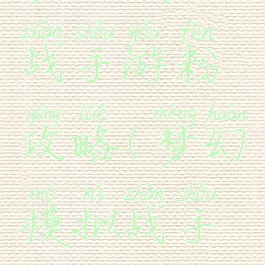 zhàn shǒu yóu fěn
战手游粉
gōng lüè mèng huàn
攻略(梦幻
mó nǐ zhàn shǒu
模拟战手